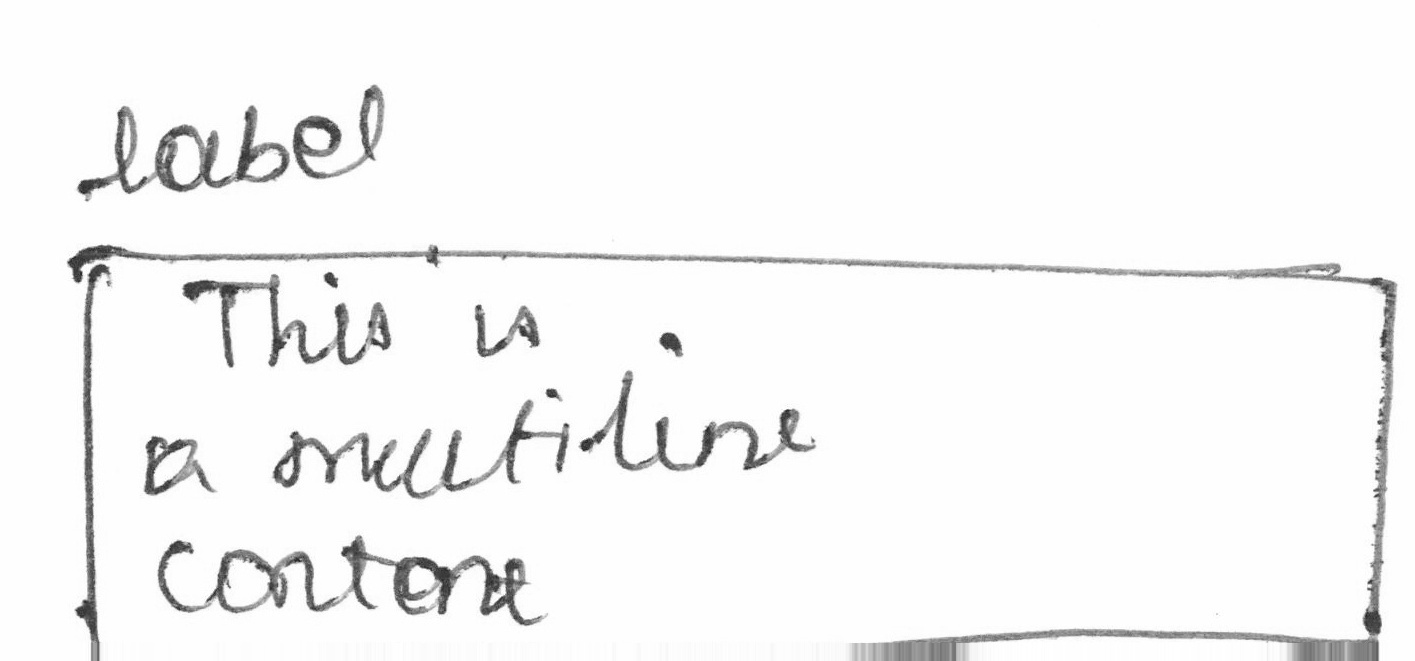 label
This is
a multiline
content